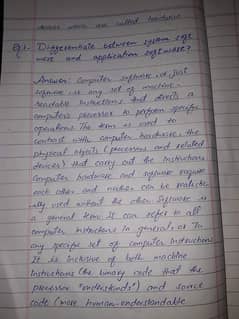 access more are called hardware
Q1- Differentiate between system soft
ware and application software?
Answer: Computer software, or just
software is any set of machine-
readable instructions that directs a
computer's processor to perform specific
operations. The term is used to
contrast with computer hardware, the
physical objects (processor and related
devices) that carry out the instructions.
Computer hardware and software require
each other and neither can be realistic
ally used without the other. Software is
a general term. It can refer to all
computer instructions in general or to
any specific set of computer instructions.
It is inclusive of both machine
instructions (the binary code that the
processor "understands") and source
code (more human-understandable